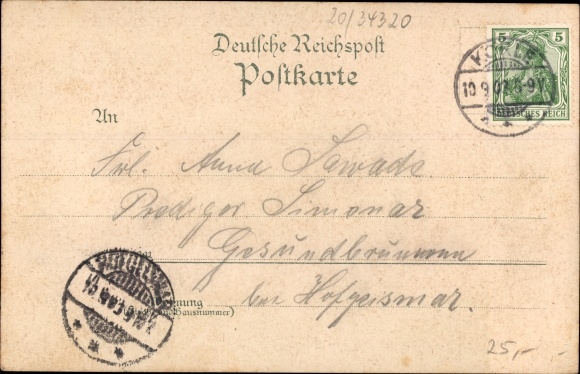 20/34320
Deutsche Reichspost
Postkarte
5 5
DEUTSCHES REICH
10 9 02
An
Frl. Anna Sawade.
Prediger Simonar
Gesundbrunnen
in
bei Hofgeismar.
Wohnung
(Straße und Hausnummer)
25,-